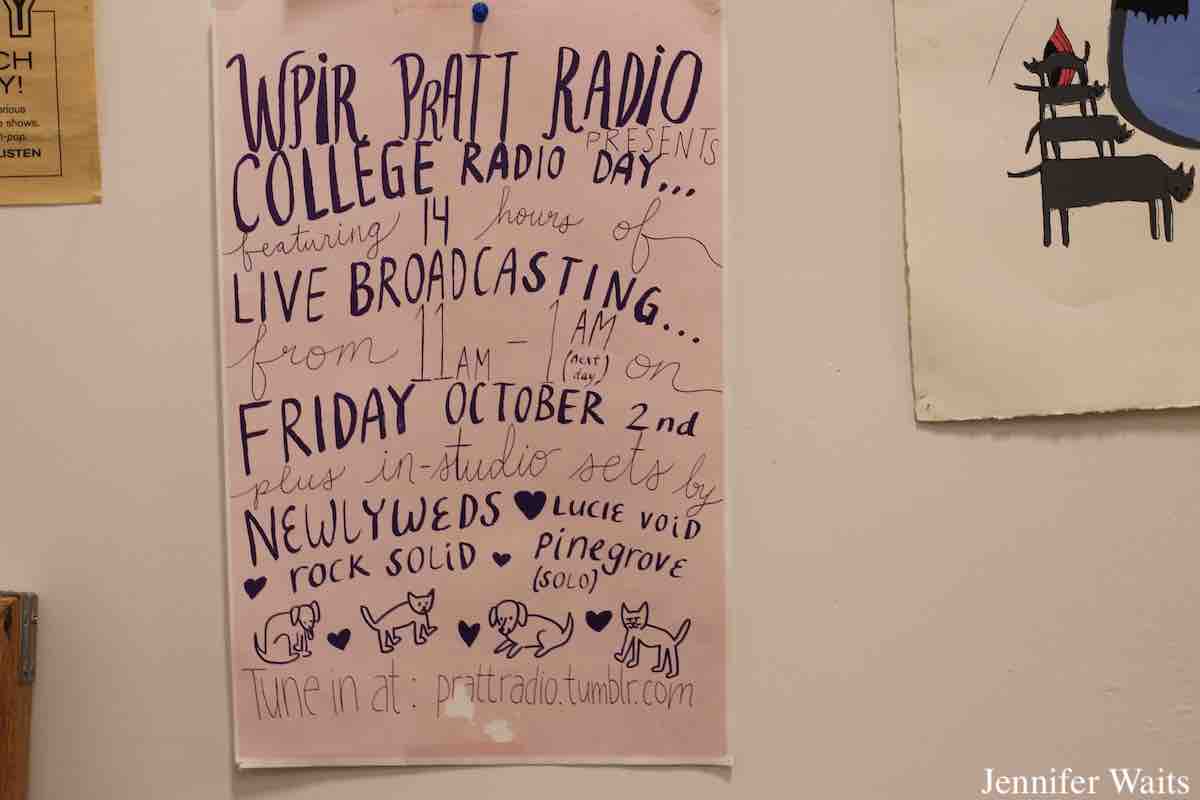 Y
CH
Y!
shows.
-pop.
LISTEN
WPIR PRATT RADIO
PRESENTS
COLLEGE RADIO DAY...
featuring 14 hours of
LIVE BROADCASTING...
from 11AM - 1AM (next day) on
FRIDAY OCTOBER 2nd
plus in-studio sets by
NEWLYWEDS ♥ LUCIE VOID
♥ ROCK SOLID ♥ PINEGROVE
(SOLO)
Tune in at: prattradio.tumblr.com
Jennifer Waits